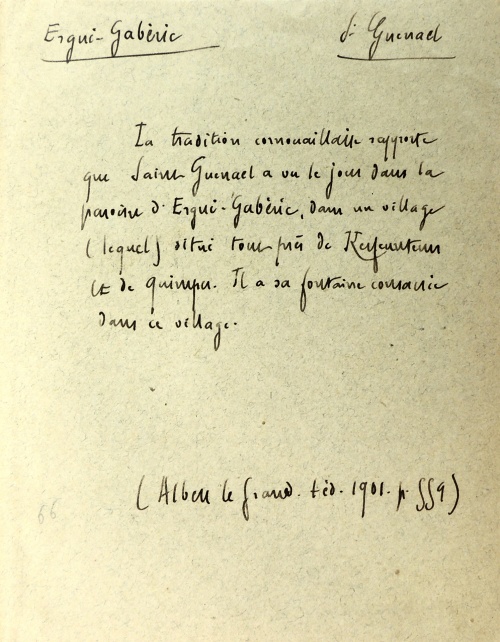 Ergui-Gabéric
St Guenael
La tradition cornouaillaise rapporte
que Saint Guenael a vu le jour dans la
paroisse d'Ergui-Gabéric, dans un village
(lequel) situé tout près de Kerfeunteun
et de Quimper. Il a sa fontaine consacrée
dans ce village.
(Albert le Grand. éd. 1901. p. 559)
66